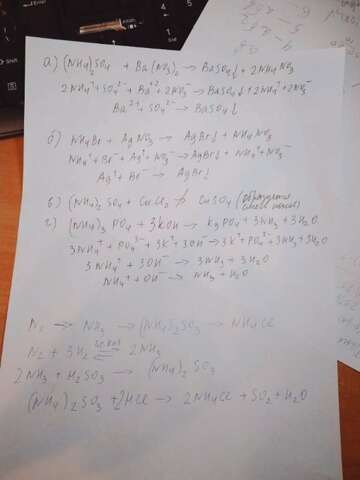 а) (NH4)2SO4 + Ba(NO3)2 → BaSO4↓ + 2NH4NO3
2NH4⁺ + SO4²⁻ + Ba²⁺ + 2NO3⁻ → BaSO4↓ + 2NH4⁺ + 2NO3⁻
Ba²⁺ + SO4²⁻ → BaSO4↓
б) NH4Br + AgNO3 → AgBr↓ + NH4NO3
NH4⁺ + Br⁻ + Ag⁺ + NO3⁻ → AgBr↓ + NH4⁺ + NO3⁻
Ag⁺ + Br⁻ → AgBr↓
в) (NH4)2SO4 + CuCl2 ↛ CuSO4 (образуется
г) (NH4)3PO4 + 3KOH → K3PO4 + 3NH3 + 3H2O
3NH4⁺ + PO4³⁻ + 3K⁺ + 3OH⁻ → 3K⁺ + PO4³⁻ + 3NH3 + 3H2O
3NH4⁺ + 3OH⁻ → 3NH3 + 3H2O
NH4⁺ + OH⁻ → NH3 + H2O
N2 → NH3 → (NH4)2SO3 → NH4Cl
N2 + 3H2 ⇄ 2NH3
2NH3 + H2SO3 → (NH4)2SO3
(NH4)2SO3 + 2HCl → 2NH4Cl + SO2 + H2O